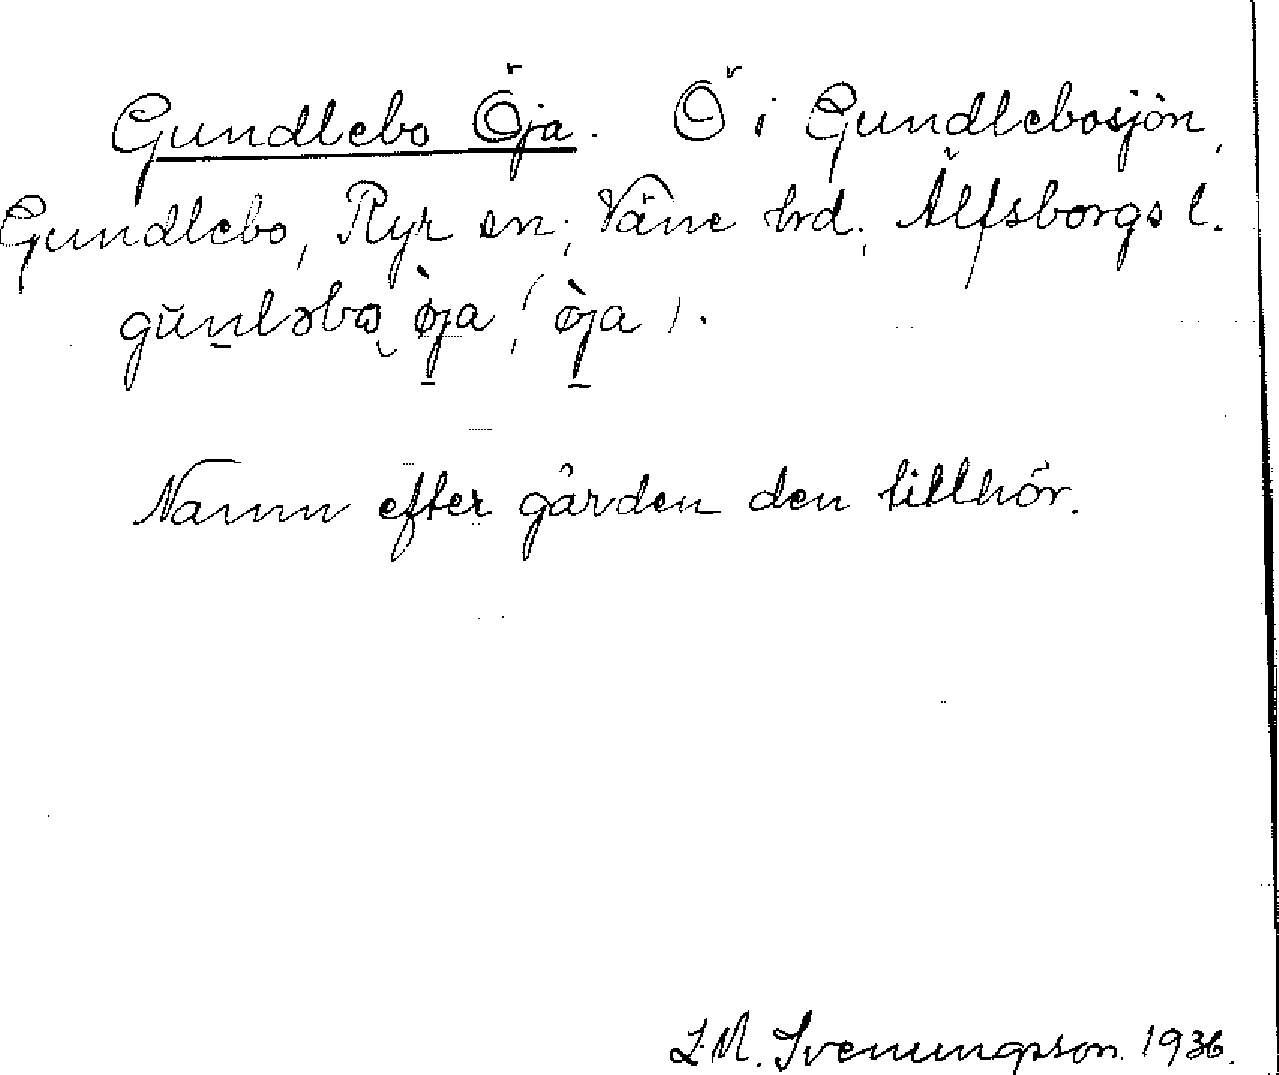 Gundlebo Öja. Ö i Gundlebosjön,
Gundlebo, Ryr sn, Väne hrd, Älfsborgs l.
gŭn̠ləbo̜ ø̀ja, (ø̀ja).
Namn efter gården den tillhör.
L.M. Svenungsson 1936.